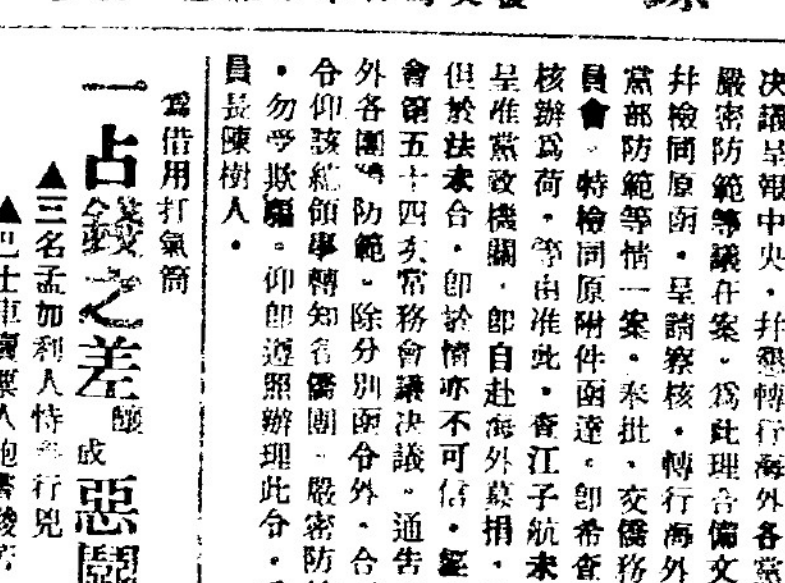 決議呈報中央・幷懇轉行海外各黨
嚴密防範等議在案。爲此理合備文
幷檢同原函・呈請察核・轉行海外
黨部防範等情一案。奉批・交僑務
員會。特檢同原附件函達。卽希查
核辦爲荷・等由准此・查江子航未
呈准黨政機關・卽自赴海外募捐・
但於法未合・卽於情亦不可信・經
會第五十四次常務會議決議。通告
外各團體防範。除分別函令外・合
令仰該總領事轉知各僑團・嚴密防
・勿受欺騙。仰卽遵照辦理此令・
員長陳樹人・
爲借用打氣筒
一占錢之差釀成惡
▲三名孟加利人恃 行兇
▲巴士車賣票人